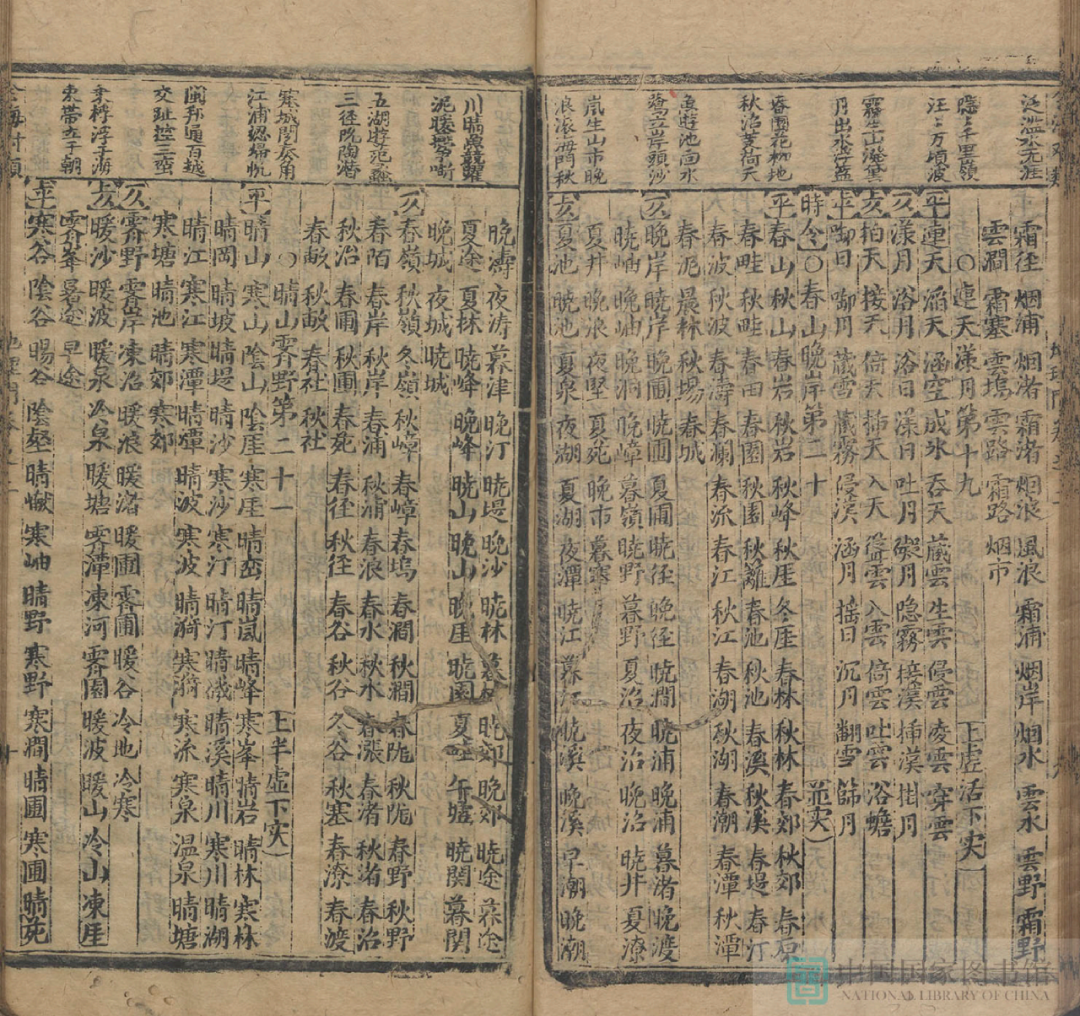 泛濫水无涯
隱々千里嶺
汪々万頃波
霧生山潑黛
月出水浮藍
春園花柳地
秋沼芰荷天
魚遊池面水
鷺立岸頭沙
嵐生山市晚
浪滚海門秋
霜径 烟浦 烟渚 霜渚 烟浪 風浪 霜浦 烟岸 烟水 雲水 雲野 霜野
雲澗 霜塞 雲塢 雲路 霜路 烟市
○連天漾月第十九 上虚活下实
平 連天 滔天 涵空 成氷 吞天 蔵雲 生雲 侵雲 凌雲 穿雲
仄 漾月 浴月 浴日 漾日 吐月 礙月 隐霧 接漢 挿漢 掛月
去 拍天 接天 倚天 挿天 入天 盪雲 入雲 倚雲 吐雲 浴蟾
上平 啣日 啣月 蔵雪 蔵霧 侵漢 涵月 摇日 沉月 翻雪 篩月
時令○春山晚岸第二十 並实
平 春山 秋山 春岩 秋岩 秋峰 秋厓 冬厓 春林 秋林 春郊 秋郊 春石
春畦 秋畦 春田 春園 秋園 秋籬 春池 秋池 春溪 秋溪 春堤 春汀
春波 秋波 春濤 春瀾 春流 春江 秋江 春湖 秋湖 春潮 春潭 秋潭
春泥 晨林 秋場 春城
仄 晚岸 暁岸 晚圃 暁圃 夏圃 暁径 晚径 暁澗 晚浦 晚浦 暮渚 晚渡
暁岫 晚岫 晚洞 晚嶂 暮嶺 暁野 暮野 夏沼 夜沼 晚沼 暁井 夏潦
夏井 晚浪 夜壑 夏苑 晚市 暮寨
去 夏池 暁池 夏泉 夜湖 夏湖 夜潭 暁江 暮江 暁溪 晚溪 早潮 晚潮
川晴魚競躍
泥暖燕爭啣
五湖遊范蠡
三径悅陶潛
寒城聞奏角
江浦認歸帆
閩邦通百越
交趾控三蠻
乗桴浮于海
束帶立于朝
晚濤 夜涛 暮津 晚汀 暁堤 晚沙 暁林 暮 晚郊 晚郊 晚途 暮途
夏途 夏林 暁峰 晚峰 暁山 晚山 晚厓 暁園 夏畦 午墟 暁関 暮関
晚城 夜城 暁城
仄 春嶺 秋嶺 冬嶺 秋嶂 春嶂 春塢 春澗 秋澗 春陇 秋陇 春野 秋野
春陌 春岸 秋岸 春浦 秋浦 春浪 春水 秋水 春漲 春渚 秋渚 春沼
秋沼 春圃 秋圃 春苑 春径 秋径 春谷 秋谷 冬谷 秋塞 春潦 春渡
春畝 秋畝 春社 秋社
○晴山霽野第二十一 上半虚下实
平 晴山 寒山 陰山 陰厓 寒厓 晴巒 晴嵐 晴峰 寒峯 晴岩 晴林 寒林
晴岡 晴坡 晴堤 晴沙 寒沙 寒汀 晴汀 晴磯 晴溪 晴川 寒川 晴湖
晴江 寒江 寒潭 晴潭 晴波 寒波 晴漪 寒漪 寒流 寒泉 温泉 晴塘
寒塘 晴池 晴郊 寒郊
仄 霽野 霽岸 凍沼 暖浪 暖渚 暖圃 霽圃 暖谷 冷地 冷寒
去 暖沙 暖波 暖泉 冷泉 暖塘 霽潭 凍河 霽園 暖波 暖山 冷山 凍厓
霽峯 早途
上平 寒谷 陰谷 暘谷 陰壑 晴巘 寒岫 晴野 寒野 寒澗 晴圃 寒圃 晴苑
中国国家图书馆
NATIONAL LIBRARY OF CHINA